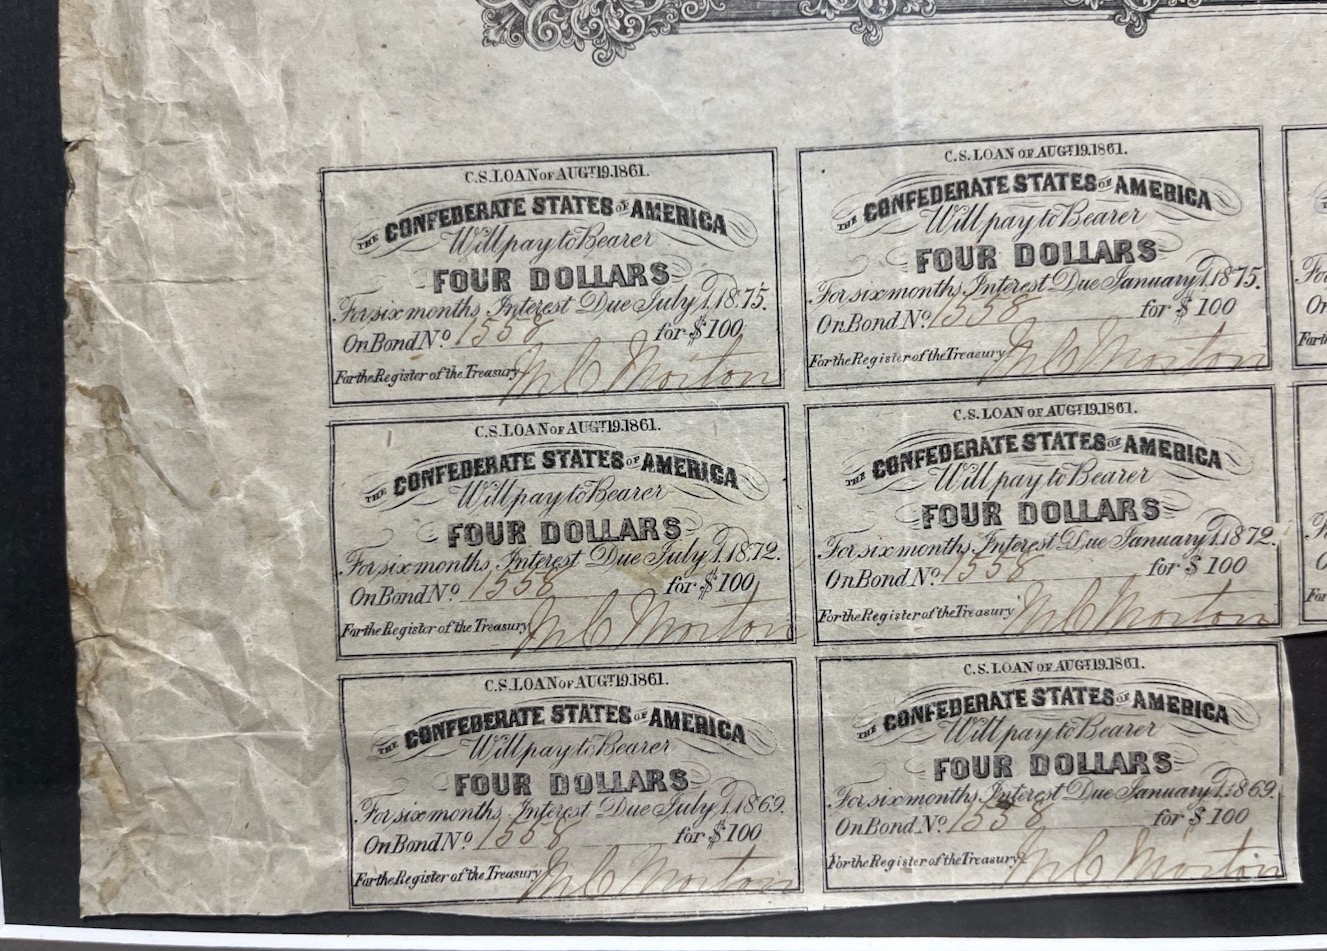 C.S. LOAN OF AUGT 19. 1861.
THE CONFEDERATE STATES OF AMERICA
Will pay to Bearer
FOUR DOLLARS
For six months, Interest Due July 1. 1875.
On Bond No. 1558 for $100
For the Register of the Treasury, M C Morton
C.S. LOAN OF AUGT 19. 1861.
THE CONFEDERATE STATES OF AMERICA
Will pay to Bearer
FOUR DOLLARS
For six months, Interest Due January 1. 1875.
On Bond No. 1558 for $100
For the Register of the Treasury, M C Morton
C.S. LOAN OF AUGT 19. 1861.
THE CONFEDERATE STATES OF AMERICA
Will pay to Bearer
FOUR DOLLARS
For six months, Interest Due July 1. 1872.
On Bond No. 1558 for $100
For the Register of the Treasury, M C Morton
C.S. LOAN OF AUGT 19. 1861.
THE CONFEDERATE STATES OF AMERICA
Will pay to Bearer
FOUR DOLLARS
For six months, Interest Due January 1. 1872.
On Bond No. 1558 for $100
For the Register of the Treasury, M C Morton
C.S. LOAN OF AUGT 19. 1861.
THE CONFEDERATE STATES OF AMERICA
Will pay to Bearer
FOUR DOLLARS
For six months, Interest Due July 1. 1869.
On Bond No. 1558 for $100
For the Register of the Treasury, M C Morton
C.S. LOAN OF AUGT 19. 1861.
THE CONFEDERATE STATES OF AMERICA
Will pay to Bearer
FOUR DOLLARS
For six months, Interest Due January 1. 1869.
On Bond No. 1558 for $100
For the Register of the Treasury, M C Morton